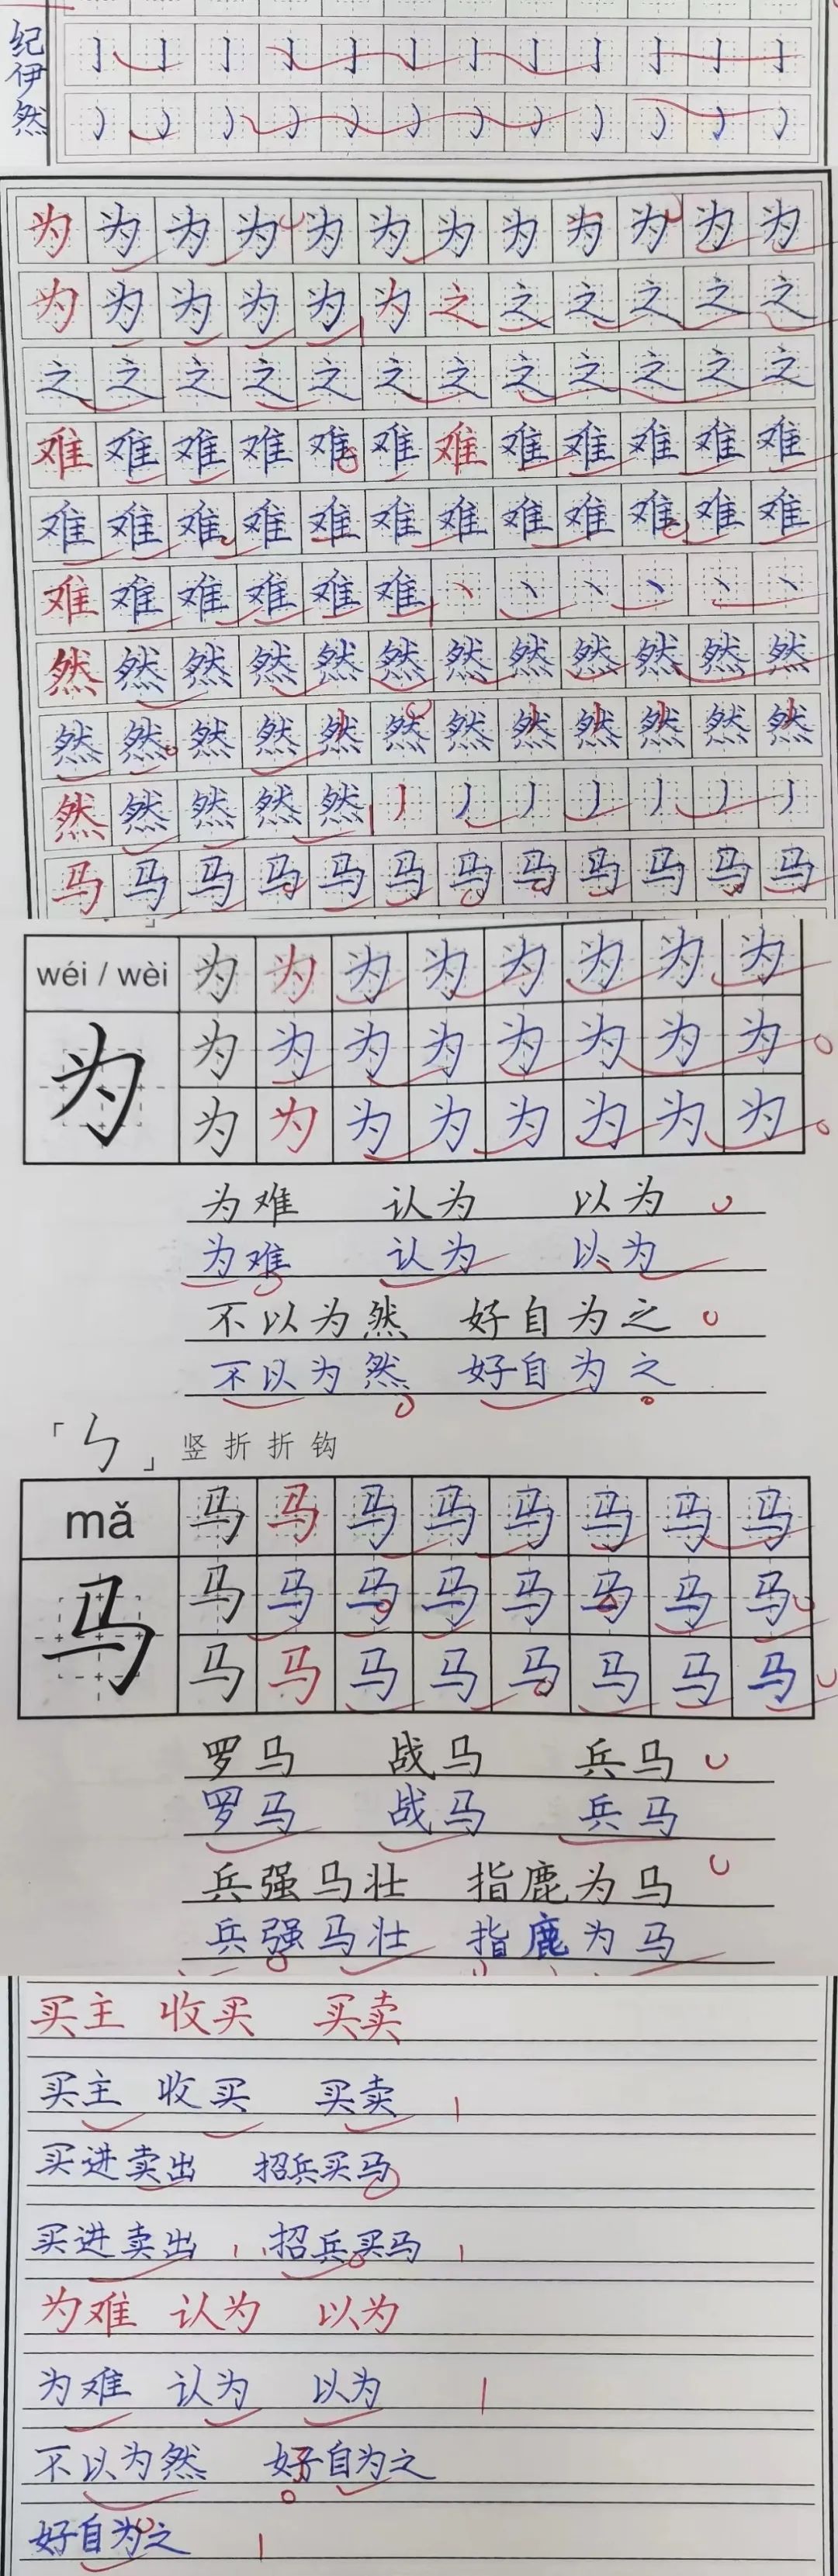 纪伊然
亅亅亅亅亅亅亅亅亅亅亅亅
为为为为为为为为为为为为
为为为为为为之之之之之之
之之之之之之之之之之之之
难难难难难难难难难难难难
难难难难难难难难难难难难
难难难难难难丶丶丶丶丶丶
然然然然然然然然然然然然
然然然然然然然然然然然然
然然然然然丿丿丿丿丿丿丿
马马马马马马马马马马马马
wéi / wèi 为为为为为为为为
为 为为为为为为为为
为为为为为为为为
为难 认为 以为
为难 认为 以为
不以为然 好自为之
不以为然 好自为之
「㇉」竖折折钩
mǎ 马马马马马马马马
马 马马马马马马马马
马马马马马马马马
罗马 战马 兵马
罗马 战马 兵马
兵强马壮 指鹿为马
兵强马壮 指鹿为马
买主 收买 买卖
买主 收买 买卖
买进卖出 招兵买马
买进卖出 招兵买马
为难 认为 以为
为难 认为 以为
不以为然 好自为之
好自为之